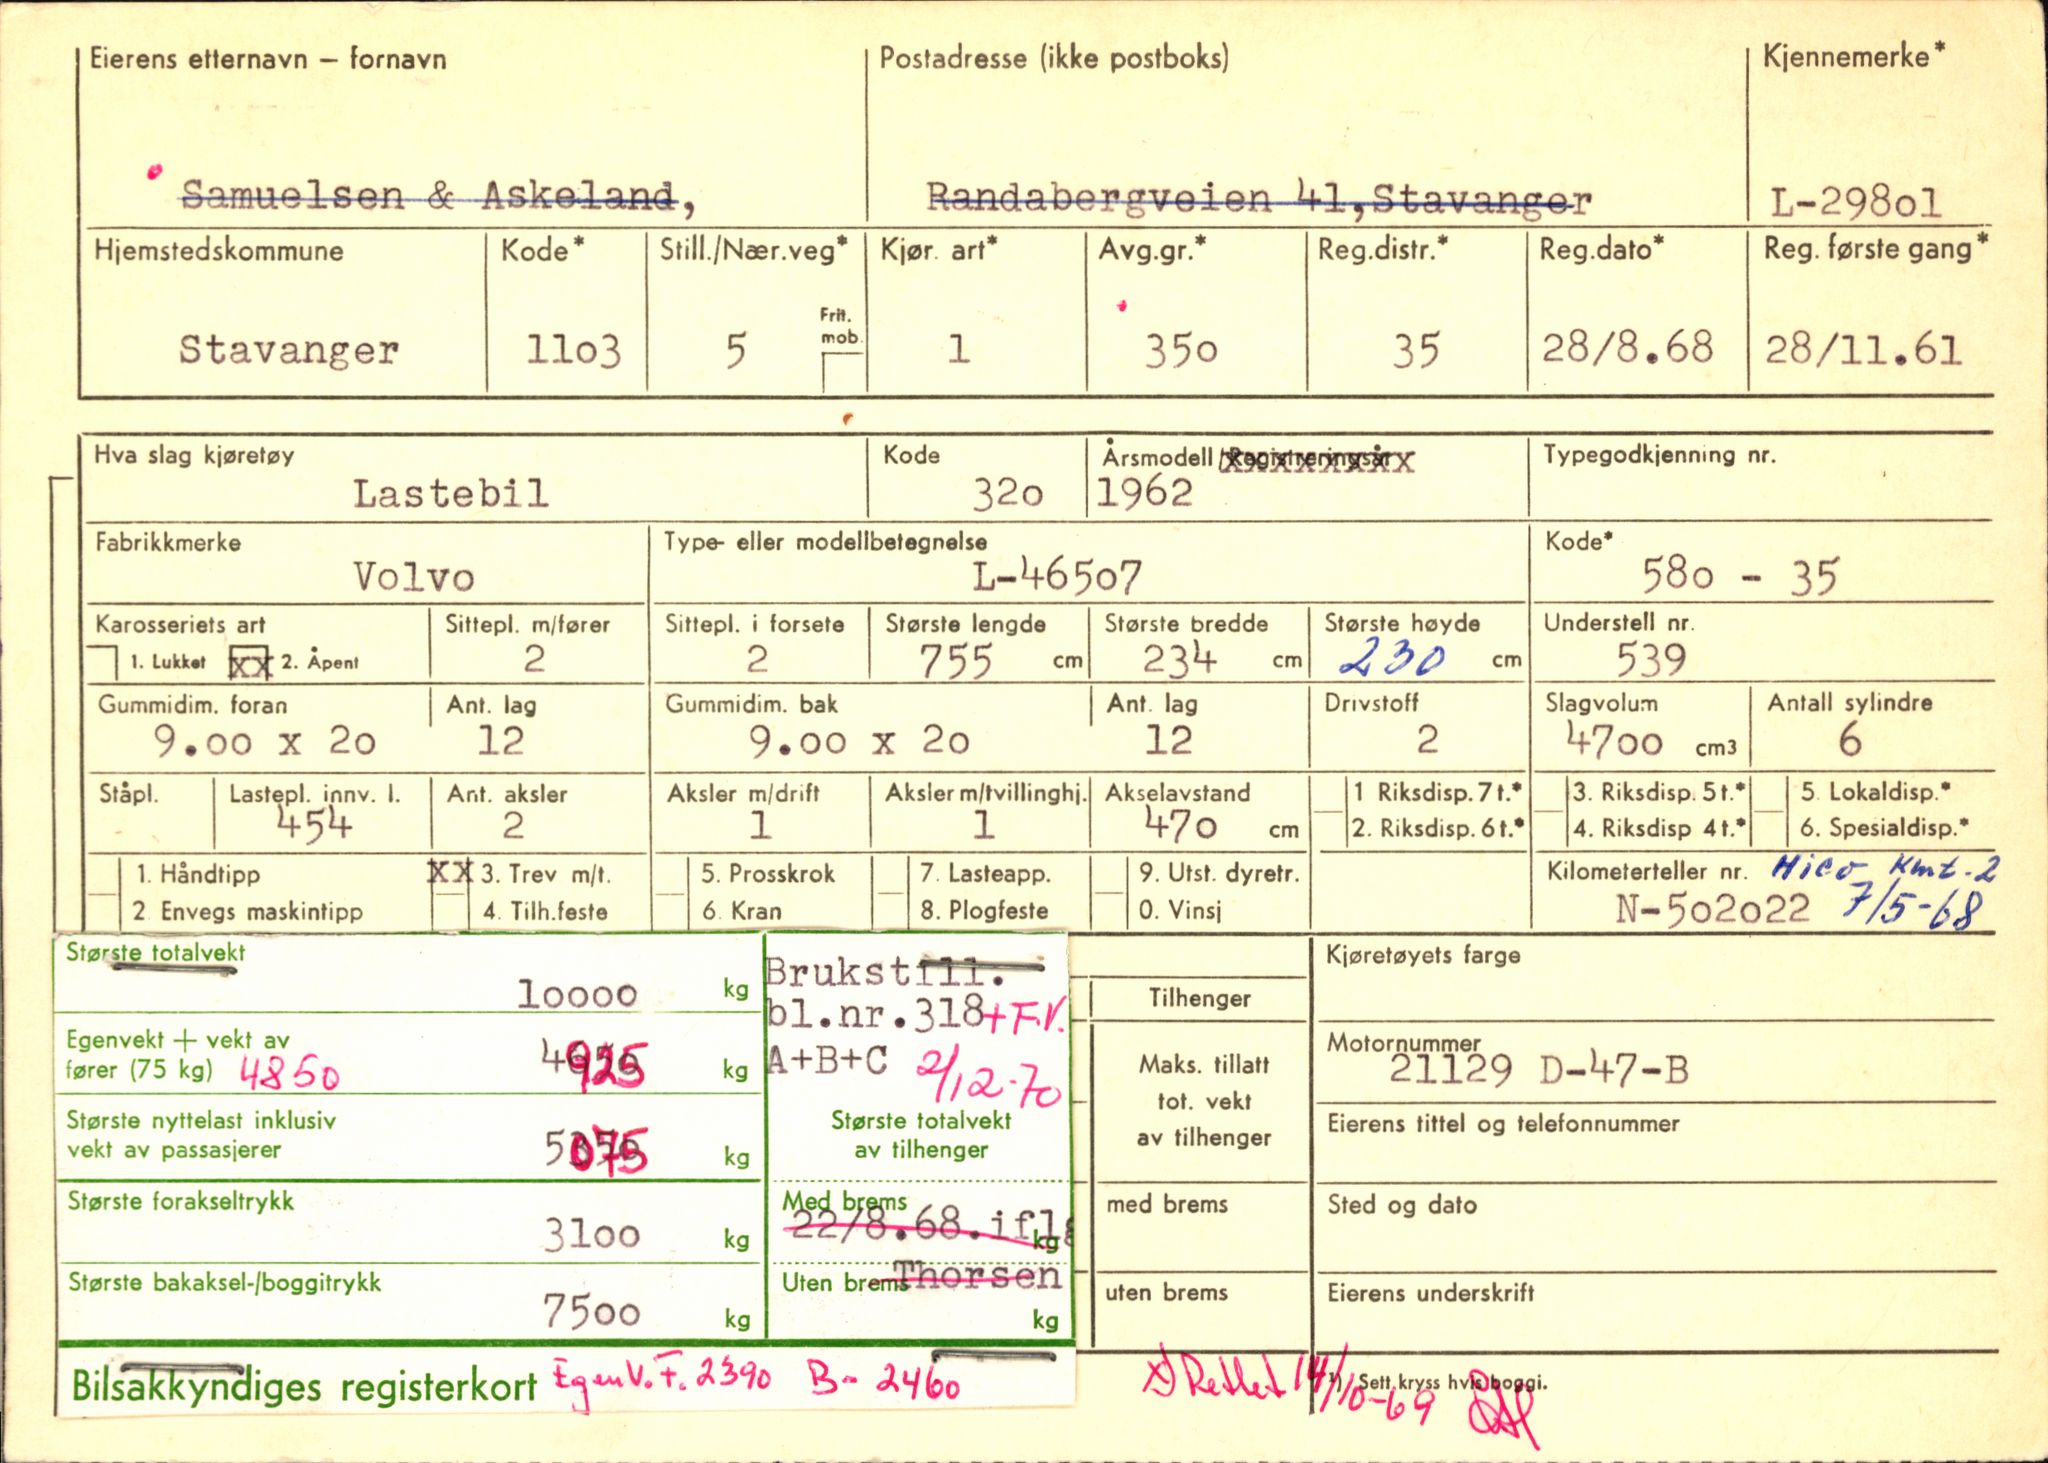 Eierens etternavn – fornavn Postadresse (ikke postboks) Kjennemerke*
Samuelsen & Askeland, Randabergveien 41, Stavanger L-298o1
Hjemstedskommune Kode* Still./Nær.veg* Kjør. art* Avg.gr.* Reg.distr.* Reg.dato* Reg. første gang*
Frit. mob.
Stavanger 11o3 5 1 35o 35 28/8.68 28/11.61
Hva slag kjøretøy Kode Årsmodell/Registreringsår Typegodkjenning nr.
Lastebil 32o 1962
Fabrikkmerke Type- eller modellbetegnelse Kode*
Volvo L-465o7 58o - 35
Karosseriets art Sittepl. m/fører Sittepl. i forsete Største lengde Største bredde Største høyde Understell nr.
1. Lukket xx 2. Åpent 2 2 755 cm 234 cm 230 cm 539
Gummidim. foran Ant. lag Gummidim. bak Ant. lag Drivstoff Slagvolum Antall sylindre
9.oo x 2o 12 9.oo x 2o 12 2 47oo cm3 6
Ståpl. Lastepl. innv. l. Ant. aksler Aksler m/drift Aksler m/tvillinghj. Akselavstand 1 Riksdisp. 7 t.* 3. Riksdisp. 5 t.* 5. Lokaldisp.*
454 2 1 1 47o cm 2. Riksdisp. 6 t.* 4. Riksdisp 4 t.* 6. Spesialdisp.*
1. Håndtipp xx 3. Trev m/t. 5. Prosskrok 7. Lasteapp. 9. Utst. dyretr. Kilometerteller nr. Hico Kmt-2
2 Envegs maskintipp 4. Tilh.feste 6. Kran 8. Plogfeste 0. Vinsj N-5o2o22 7/5-68
Største totalvekt Brukstill. Kjøretøyets farge
1oooo kg bl.nr.318 + F.V. Tilhenger
Egenvekt + vekt av Motornummer
fører (75 kg) 4850 4 925 kg A+B+C 2/12-70 Maks. tillatt 21129 D-47-B
tot. vekt
Største nyttelast inklusiv Største totalvekt av tilhenger Eierens tittel og telefonnummer
vekt av passasjerer 5 075 kg av tilhenger
Største forakseltrykk Med brems med brems Sted og dato
31oo kg 22/8.68.iflg kg
Største bakaksel-/boggitrykk Uten brems Thorsen uten brems Eierens underskrift
75oo kg kg
Bilsakkyndiges registerkort EgenV. F. 2390 B- 2460 x) Rettet 14/10-69 ¹) Sett kryss hvis boggi.